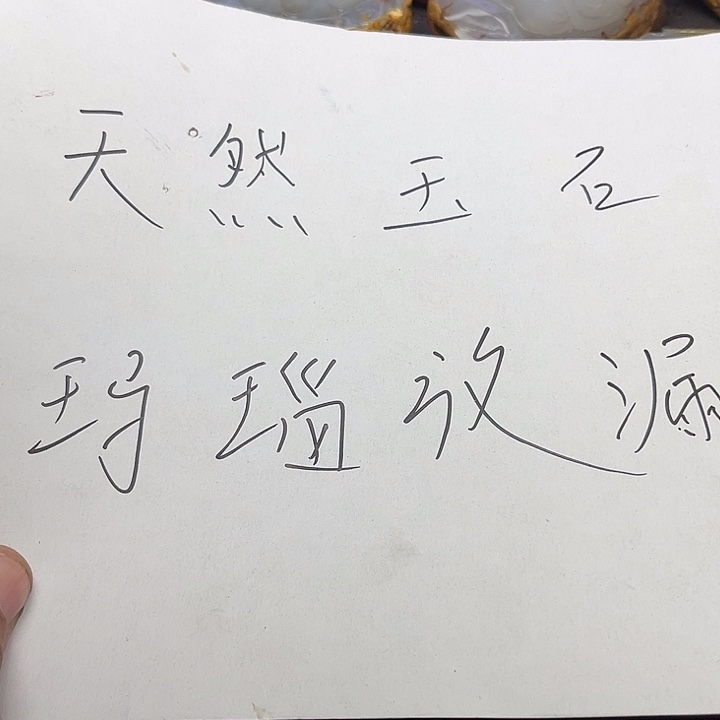 天然玉石
玛瑙放漏